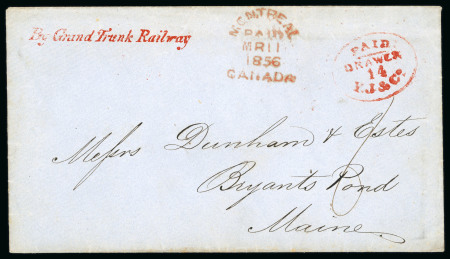 By Grand Trunk Railway
MONTREAL
PAID
MR 11
1856
CANADA
PAID
DRAWER
14
F.J & Co.
Messrs Dunham & Estes
Bryants Pond
Maine